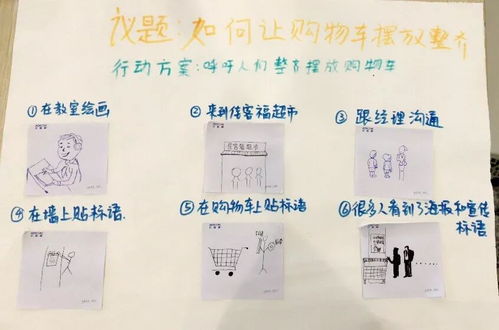 议题:如何让购物车摆放整齐
行动方案:呼吁人们整齐摆放购物车
①在教室绘画
②来到佳客福超市
③跟经理沟通
④在墙上贴标语.
⑤在购物车上贴标语
⑥很多人看到了海报和宣传
标语